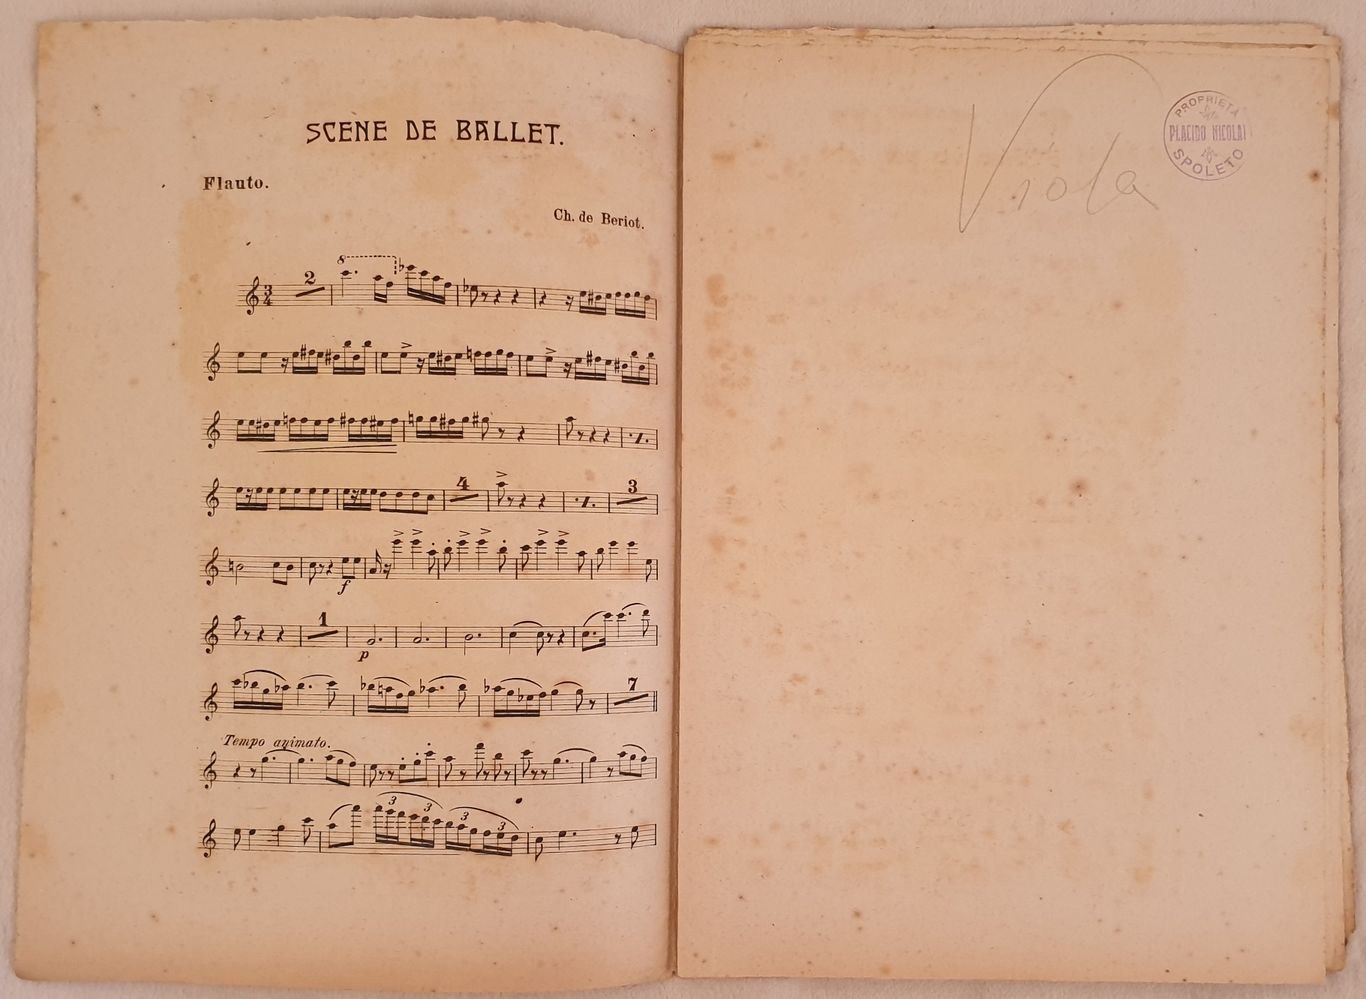 SCENE DE BALLET.
Flauto.
Ch. de Beriot.
8
2
4
3
f
1
p
7
Tempo animato.
3
3
3
3
Viola
PROPRIETÀ
PLACIDO NICOLAI
SPOLETO